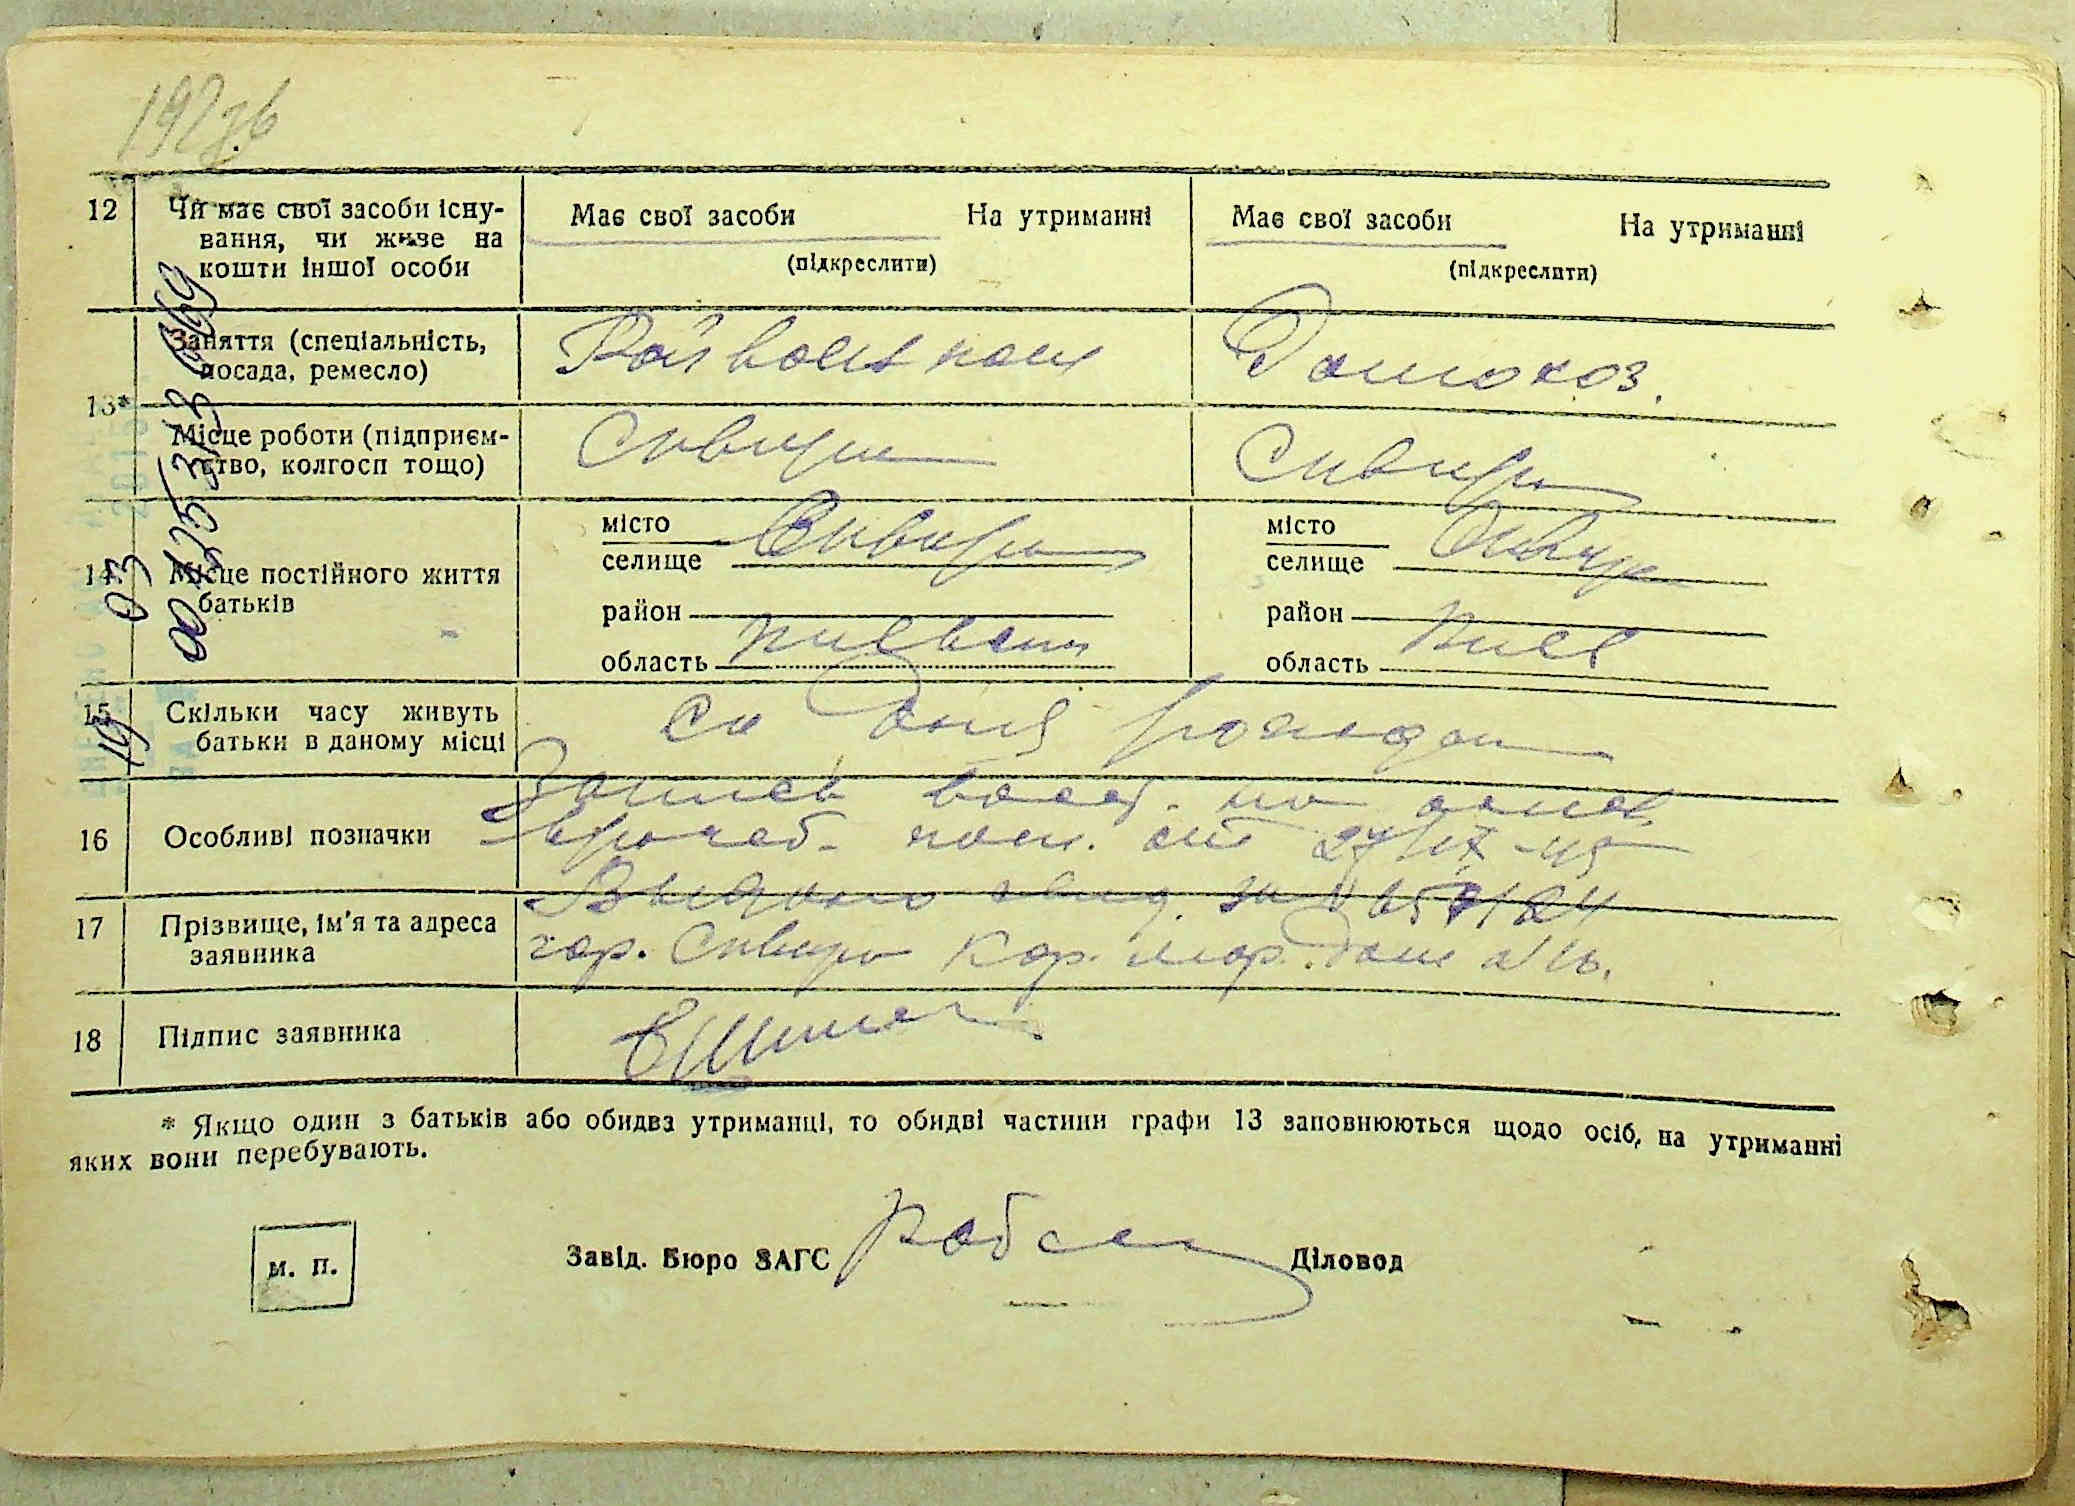 192зв
12 Чи має свої засоби існу-
вання, чи живе на
кошти іншої особи
Має свої засоби На утриманні
(підкреслити)
Має свої засоби На утриманні
(підкреслити)
13*
Заняття (спеціальність,
посада, ремесло)
Райвоенком
Домохоз.
Місце роботи (підприєм-
ство, колгосп тощо)
Сквира
Сквира
14 Місце постійного життя
батьків
місто Сквира
селище
район
область Киевская
місто Сквира
селище
район
область Киев
15 Скільки часу живуть
батьки в даному місці
со дня рожден
16 Особливі позначки
Запись восст. на основ.
врачеб. ком. от 27/IX-45
Выдано свид. за №
17 Прізвище, ім'я та адреса
заявника
гор. Сквира Кар. Мар. дом №16.
18 Підпис заявника
* Якщо один з батьків або обидва утриманці, то обидві частини графи 13 заповнюються щодо осіб, на утриманні
яких вони перебувають.
м. п.
Завід. Бюро ЗАГС
Діловод